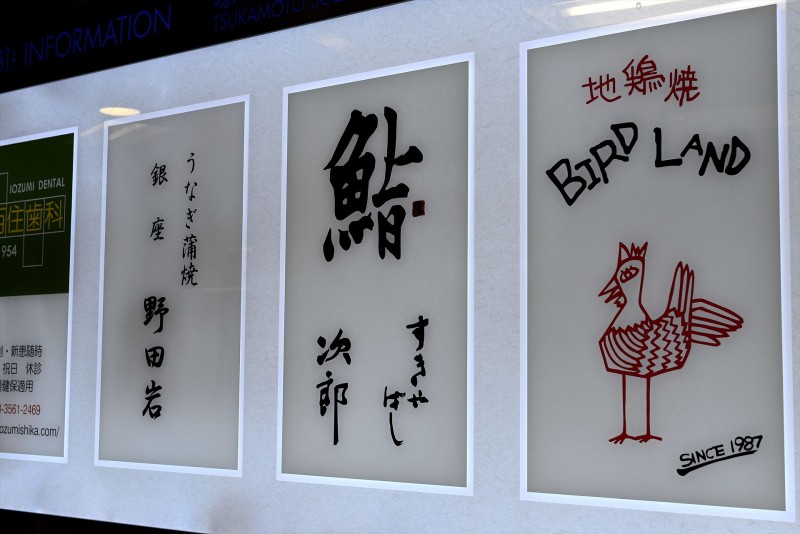 B1F INFORMATION
TSUKAMOTO
IOZUMI DENTAL
住歯科
1954
・新患随時
祝日 休診
健保適用
3-3561-2469
ozumishika.com/
うなぎ蒲焼
銀座
野田岩
鮨
すきやばし
次郎
地鶏焼
BIRD LAND
SINCE 1987